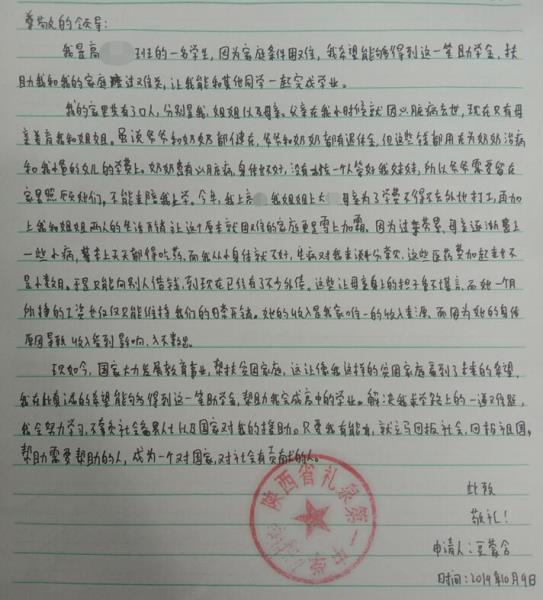 尊敬的领导:
我是高 班的一名学生,因为家庭条件困难,我希望能够得到这一笔助学金,扶
助我和我的家庭渡过难关,让我能和其他同学一起完成学业。
我的家里共有了口人,分别是我,姐姐以及母亲。父亲在我小时候就因心脏病去世,现在只有母
亲养育我和姐姐。虽说爷爷和奶奶都健在,爷爷和奶奶都有退休金,但这些钱都用去为奶奶治病
和我小鲁的女儿的学费上。奶奶患有心脏病,身体不好,没有办法一个人管好我妹妹,所以爷爷需要留在
家里照顾她们,不能来陪我上学。今年,我上高 我姐姐上大 母亲为了学费不得不去外地打工,再加
上我和姐姐两人的生活开销,让这个原本就困难的家庭更是雪上加霜。因为过于劳累,母亲逐渐患上
一些小病,基本上天天都得吃药,而我从小身体就不好,生病对我来说十分常见,这些医药费加起来也不
是小数目。于是只能向别人借钱,到现在已经有了不少外债。这些让母亲身上的担子重不堪言,而她一个月
所挣的工资也仅仅只能维持我们的日常开销。她的收入是我家唯一的收入来源,而因为她的身体
原因导致收入受到影响,入不敷出。
现如今,国家大力发展教育事业,帮扶贫困家庭,这让像我这样的贫困家庭看到了未来的希望,
我在此真诚的希望能够得到这一笔助学金,帮助我完成高中的学业。解决我求学路上的一道难题,
我会努力学习,不辜负社会各界人士以及国家对我的援助。只要我有能力,就立马回报社会,回报祖国,
帮助需要帮助的人,成为一个对国家,对社会有贡献的人。
此致
敬礼!
申请人:
时间:2019年10月9日
陕西省礼泉第一中学